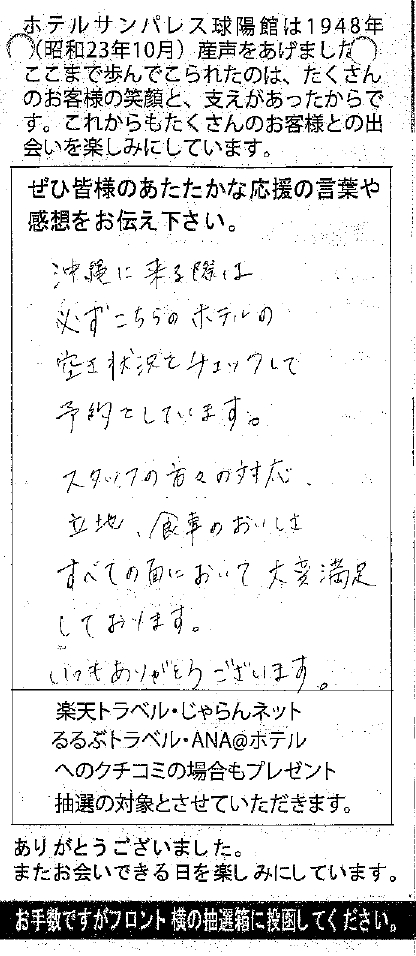 ホテルサンパレス球陽館は1948年
(昭和23年10月)産声をあげました
ここまで歩んでこられたのは、たくさん
のお客様の笑顔と、支えがあったからで
す。これからもたくさんのお客様との出
会いを楽しみにしています。
ぜひ皆様のあたたかな応援の言葉や
感想をお伝え下さい。
沖縄に来る際は
必ずこちらのホテルの
空き状況をチェックして
予約をしています。
スタッフの方々の対応、
立地、食事のおいしさ
すべての面において大変満足
しております。
いつもありがとうございます。
楽天トラベル・じゃらんネット
るるぶトラベル・ANA@ホテル
へのクチコミの場合もプレゼント
抽選の対象とさせていただきます。
ありがとうございました。
またお会いできる日を楽しみにしています。
お手数ですがフロント横の抽選箱に投函してください。